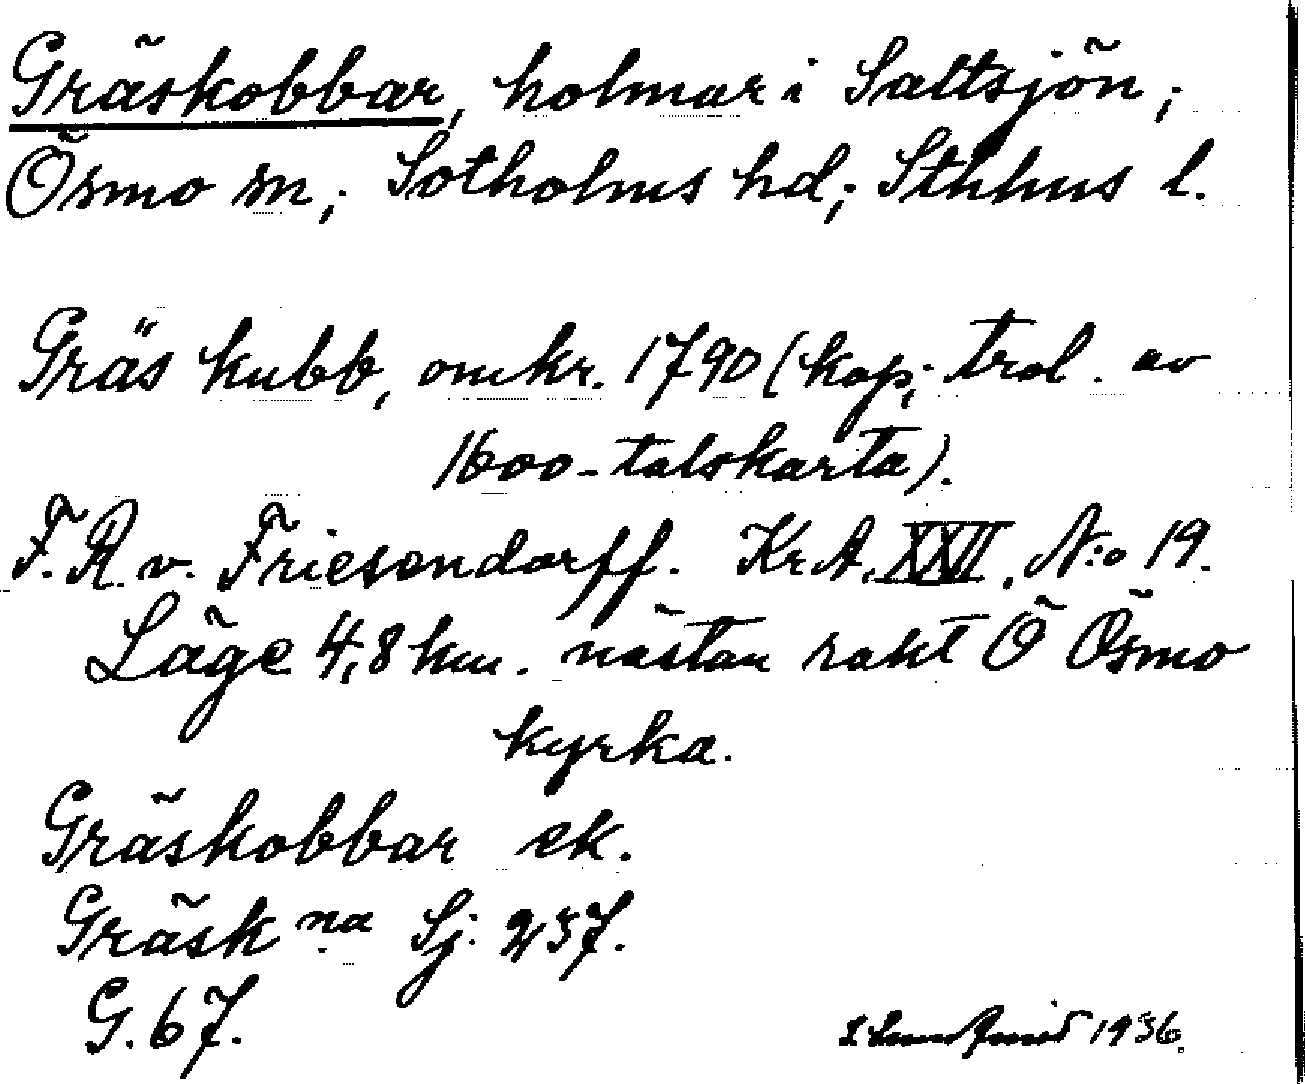 Gräskobbar, holmar i Saltsjön;
Ösmo sn; Sotholms hd; Sthlms l.
Gräs kubb, omkr. 1790 (kop; trol. av
1600-talskarta).
F. R. v. Friesendorff. Kr.A. XXVI. N:o 19.
Läge 4,8 km. nästan rakt Ö Ösmo
kyrka.
Gräskobbar ek.
Gräsk na Sj. 257.
G. 67.
1936.